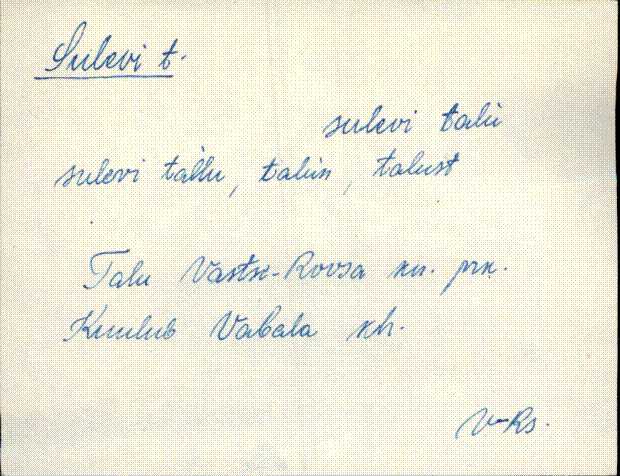 Sulevi t.
sulevi talu
sulevi tallu, talun, talust
Talu Vastse-Roosa kn. prk.
Kuulub Vabala kh.
V-Rs.